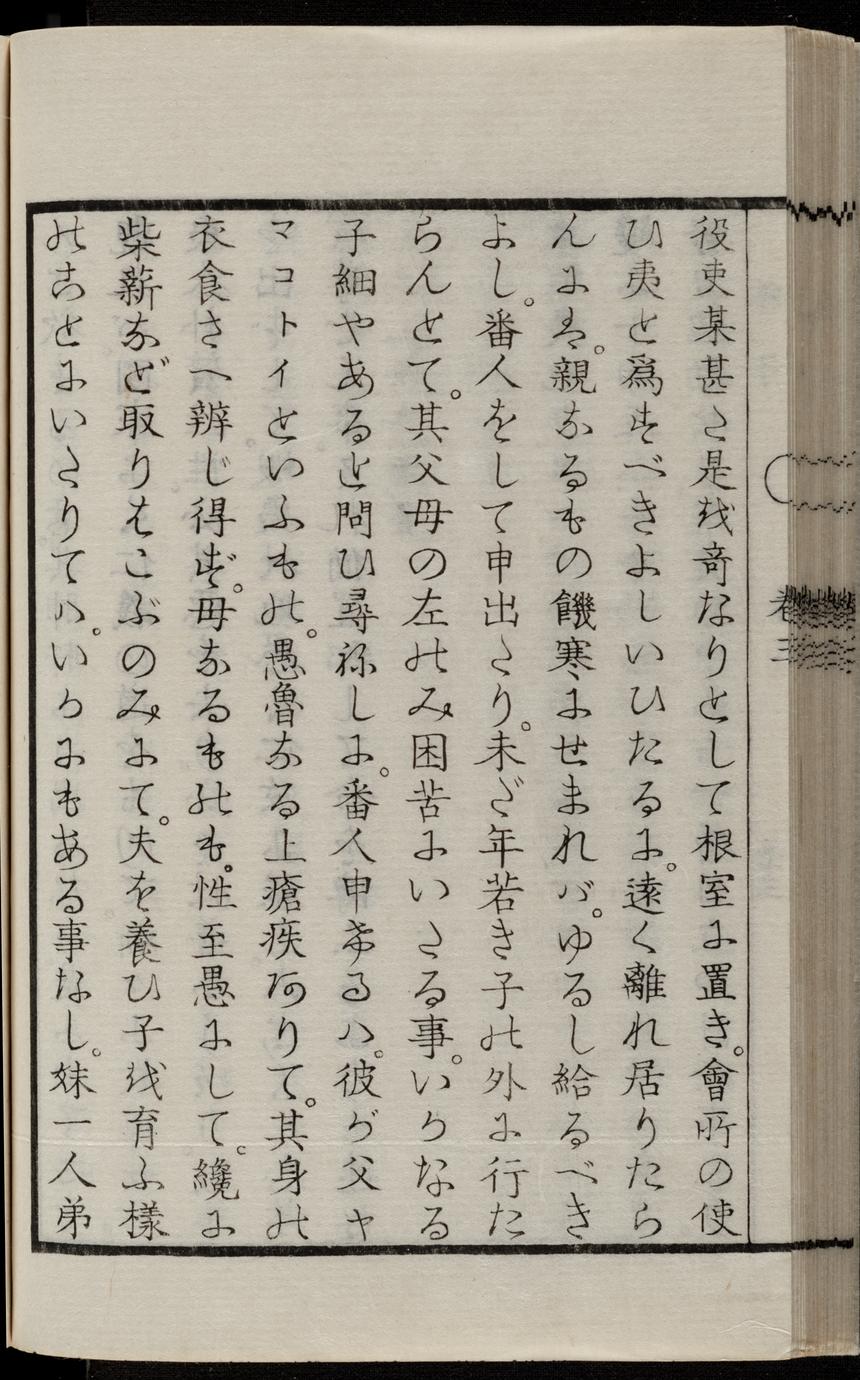 役吏某甚た是を奇なりとして根室に置き。會所の使
ひ夷と爲すべきよしいひたるに。遠く離れ居りたら
んには。親なるもの饑寒にせまれバ。ゆるし給るべき
よし。番人をして申出たり。未だ年若き子の外に行た
らんとて。其父母の左のみ困苦にいたる事。いかなる
子細やあると問ひ尋ねしに。番人申けるハ。彼が父ヤ
マコトイといふもの。愚魯なる上瘡疾ありて。其身の
衣食さへ辨じ得ず。母なるものも。性至愚にして。纔に
柴薪など取りはこぶのみにて。夫を養ひ子を育ふ樣
のことにいたりてハ。いかにもある事なし。妹一人弟
卷三